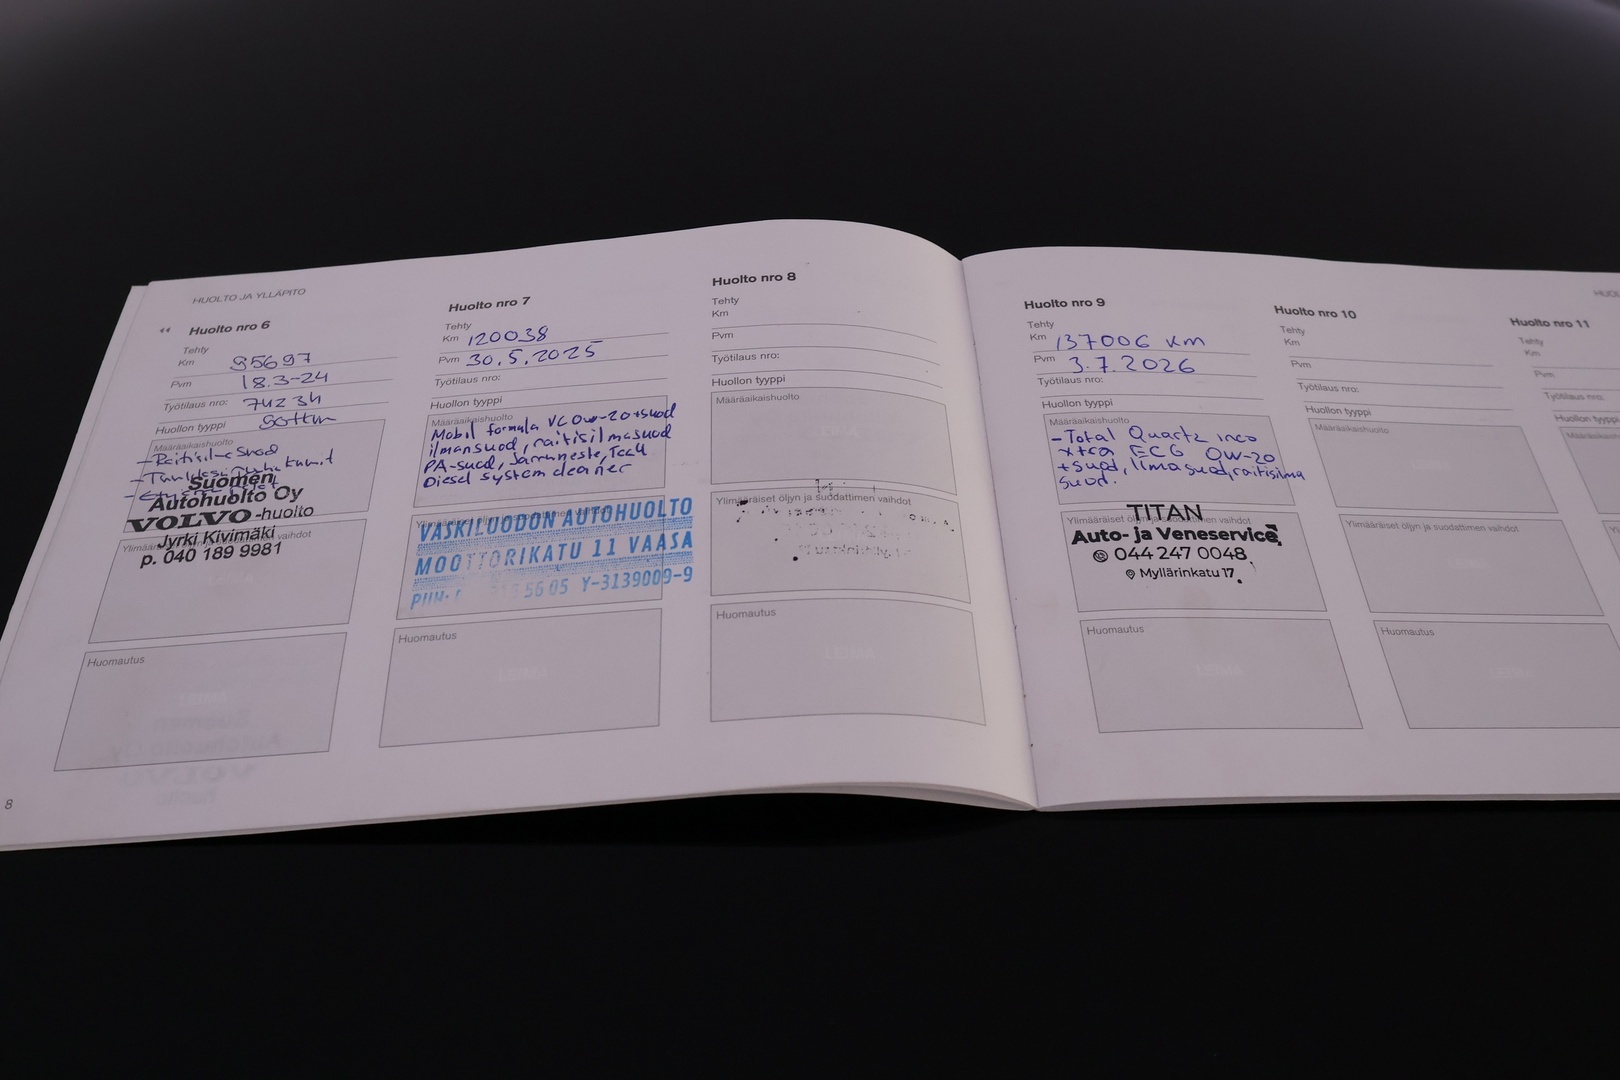 HUOLTO JA YLLÄPITO
Huolto nro 6
Tehty
Km 95697
Pvm 18.3-24
Työtilaus nro: 74234
Huollon tyyppi
Määräaikaishuolto
Suomen
Autohuolto Oy
VOLVO-huolto
Jyrki Kivimäki
p. 040 189 9981
Huomautus
8
Huolto nro 7
Tehty
Km 120038
Pvm 30.5.2025
Työtilaus nro:
Huollon tyyppi
Määräaikaishuolto
Mobil formula VC 0w-20+suod
ilmansuod, raitisilmasuod
PA-suod, Jarruneste, Tec4
Diesel system cleaner
Ylimääräiset öljyn ja suodattimen vaihdot
VASKILUODON AUTOHUOLTO
MOOTTORIKATU 11 VAASA
56 05 Y-3139009-9
Huomautus
Huolto nro 8
Tehty
Km
Pvm
Työtilaus nro:
Huollon tyyppi
Määräaikaishuolto
Ylimääräiset öljyn ja suodattimen vaihdot
Huomautus
Huolto nro 9
Tehty
Km 137006 km
Pvm 3.7.2026
Työtilaus nro:
Huollon tyyppi
Määräaikaishuolto
-Total Quartz ineo
xtra EC6 0W-20
+suod, ilmasuod, raitisilma
suod.
Ylimääräiset öljyn ja suodattimen vaihdot
TITAN
Auto- ja Veneservice
044 247 0048
Myllärinkatu 17
Huomautus
Huolto nro 10
Tehty
Km
Pvm
Työtilaus nro:
Huollon tyyppi
Määräaikaishuolto
Ylimääräiset öljyn ja suodattimen vaihdot
Huomautus
Huolto nro 11
Tehty
Km
Pvm
Työtilaus nro:
Huollon tyyppi